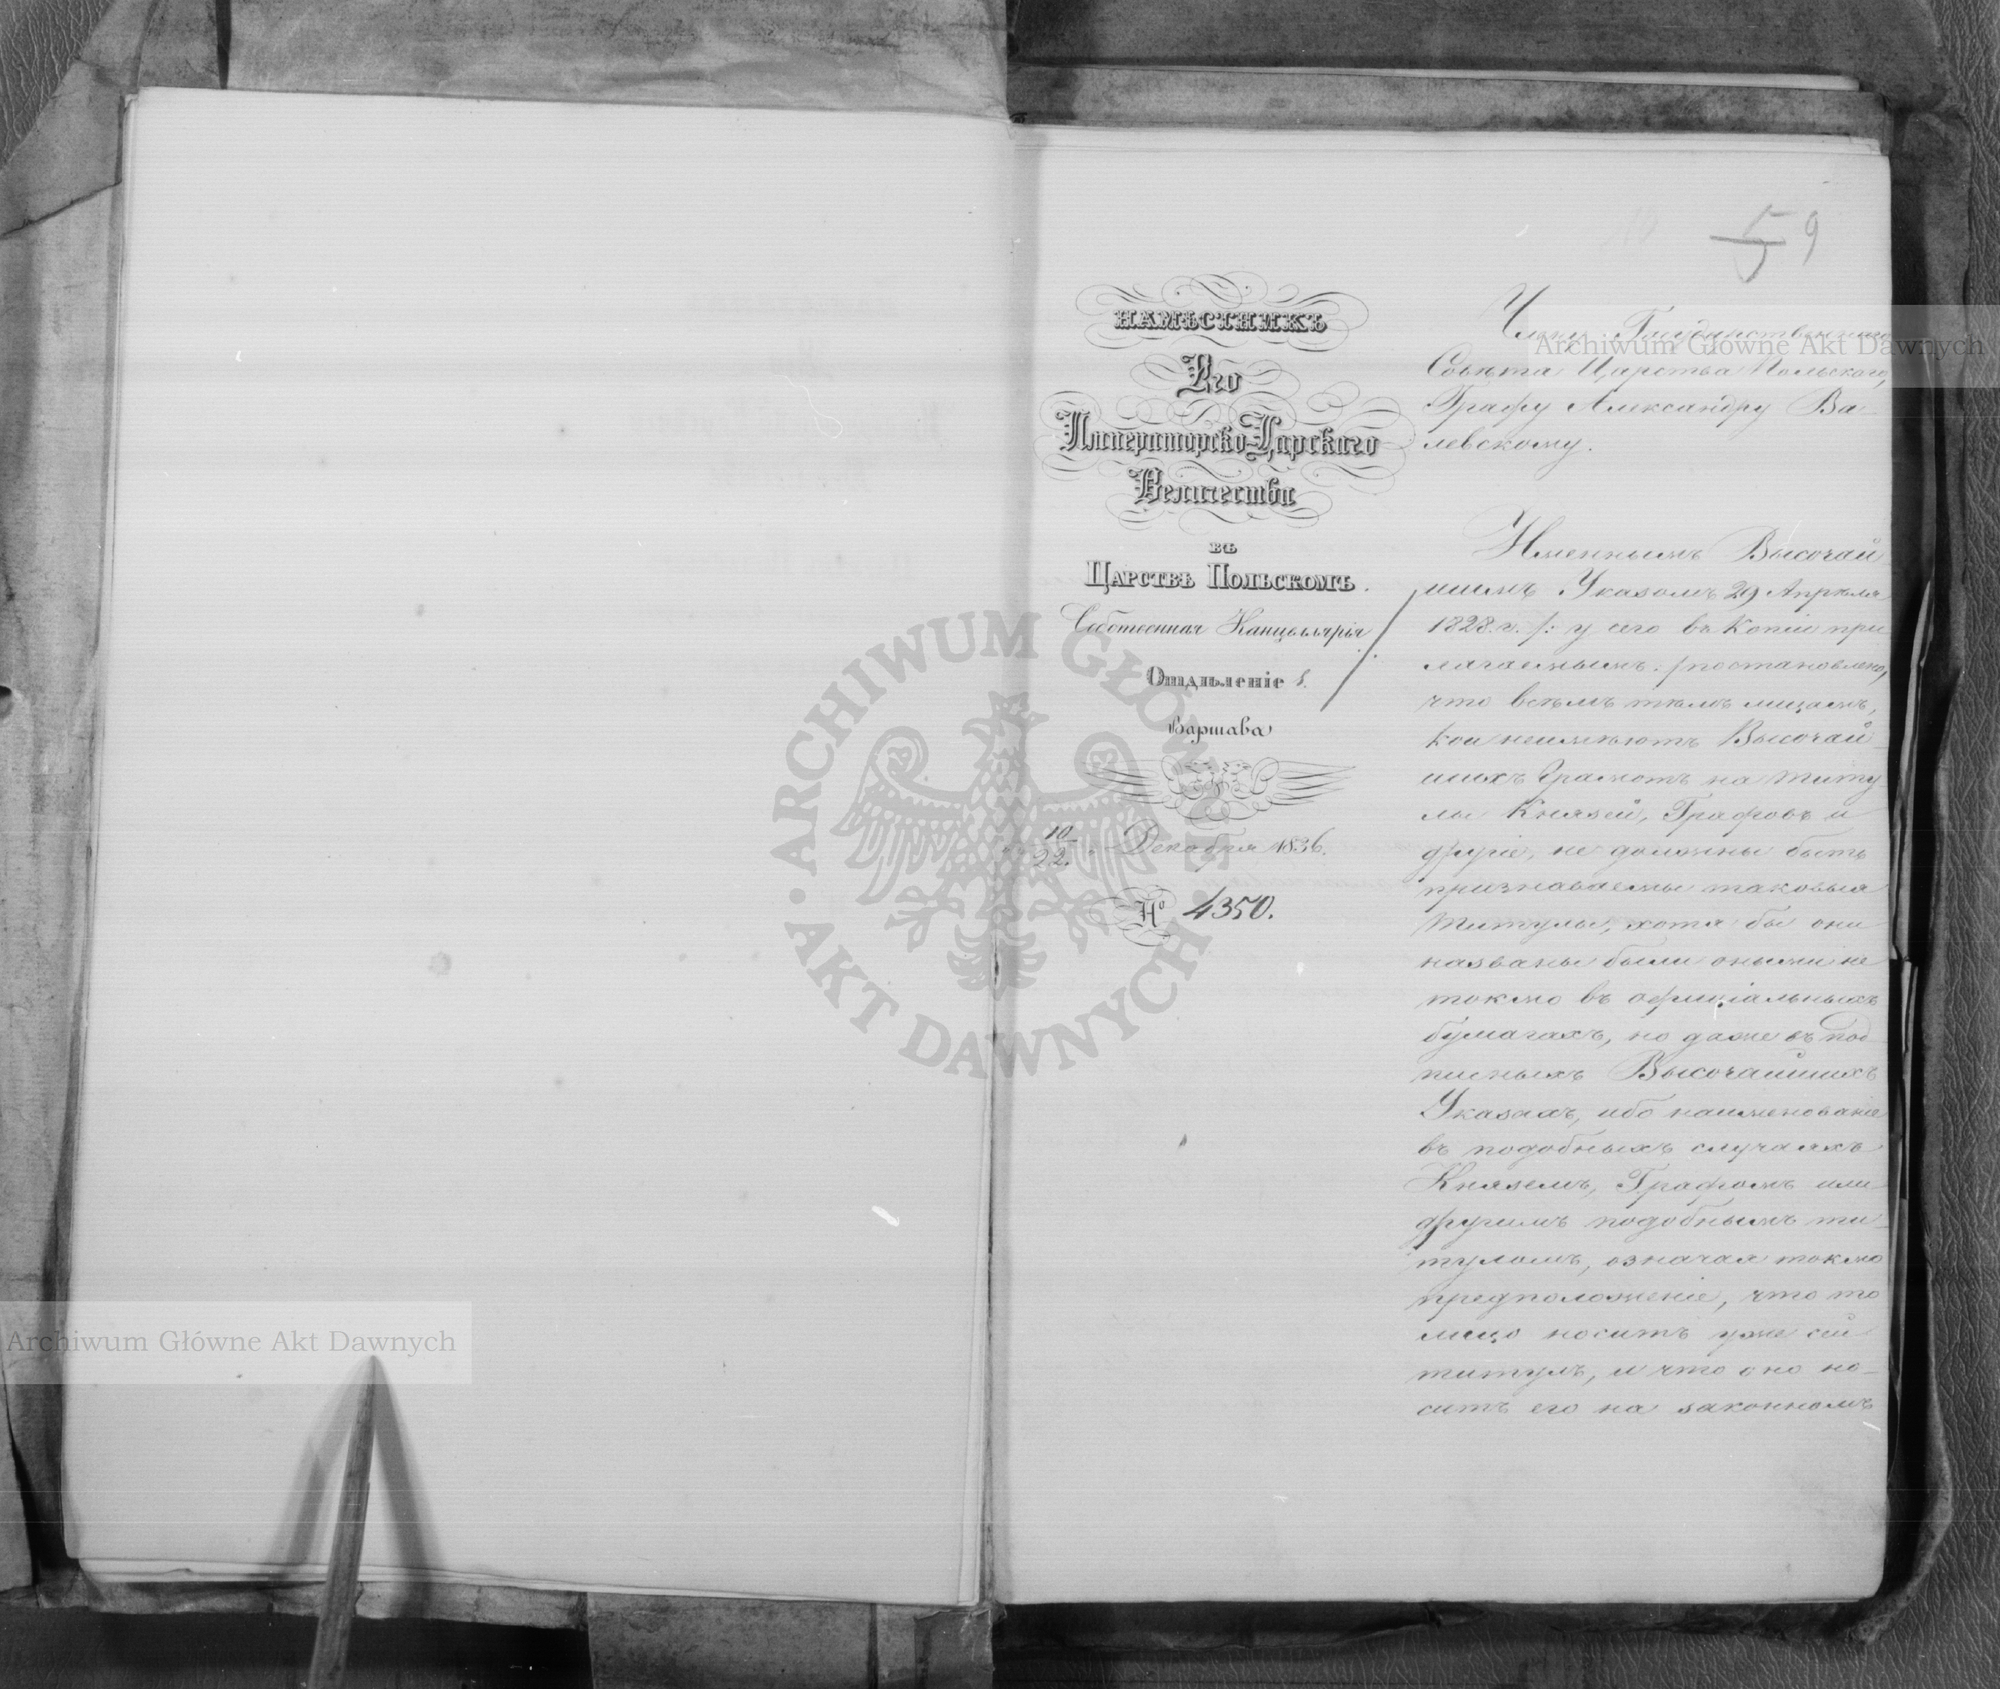 5 9
НАМѢСТНИКЪ
Его
Императорско-Царскаго
Величества
въ
Царствѣ Польскомъ.
Собственная Канцеллярія
Отдѣленіе 1.
Варшава
10/22. Декабря 1836.
№ 4350.
Члену Государственнаго
Совѣта Царства Польскаго,
Графу Александру Ва-
левскому.
Именнымъ Высочай
шимъ Указомъ 29 Апрѣля
1828. г. /: у сего въ Копіи при
лагаемымъ :/ постановлено,
что всѣмъ тѣмъ лицамъ,
кои неимѣютъ Высочай-
шихъ Грамотъ на титу
лы Князей, Графовъ и
другіе, не должны быть
признаваемы таковыя
титулы, хотя бы они
названы были оными не
токмо въ офиціальныхъ
бумагахъ, но даже въ под
писныхъ Высочайшихъ
Указахъ, ибо наименованіе
въ подобныхъ случаяхъ
Княземъ, Графомъ или
другимъ подобнымъ ти-
туломъ, означая токмо
предположеніе, что то
лицо носитъ уже сей
титулъ, и что оно но-
ситъ его на законномъ
Archiwum Główne Akt Dawnych
Archiwum Główne Akt Dawnych
ARCHIWUM GŁÓWNE AKT DAWNYCH